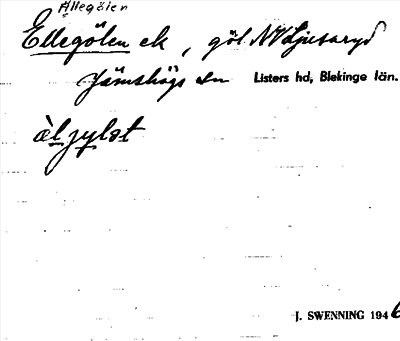 Ällegölen
Ellegölen ek, göl NV Ljusaryd
Jämshögs sn Listers hd, Blekinge län.
àljylət
J. SWENNING 1946